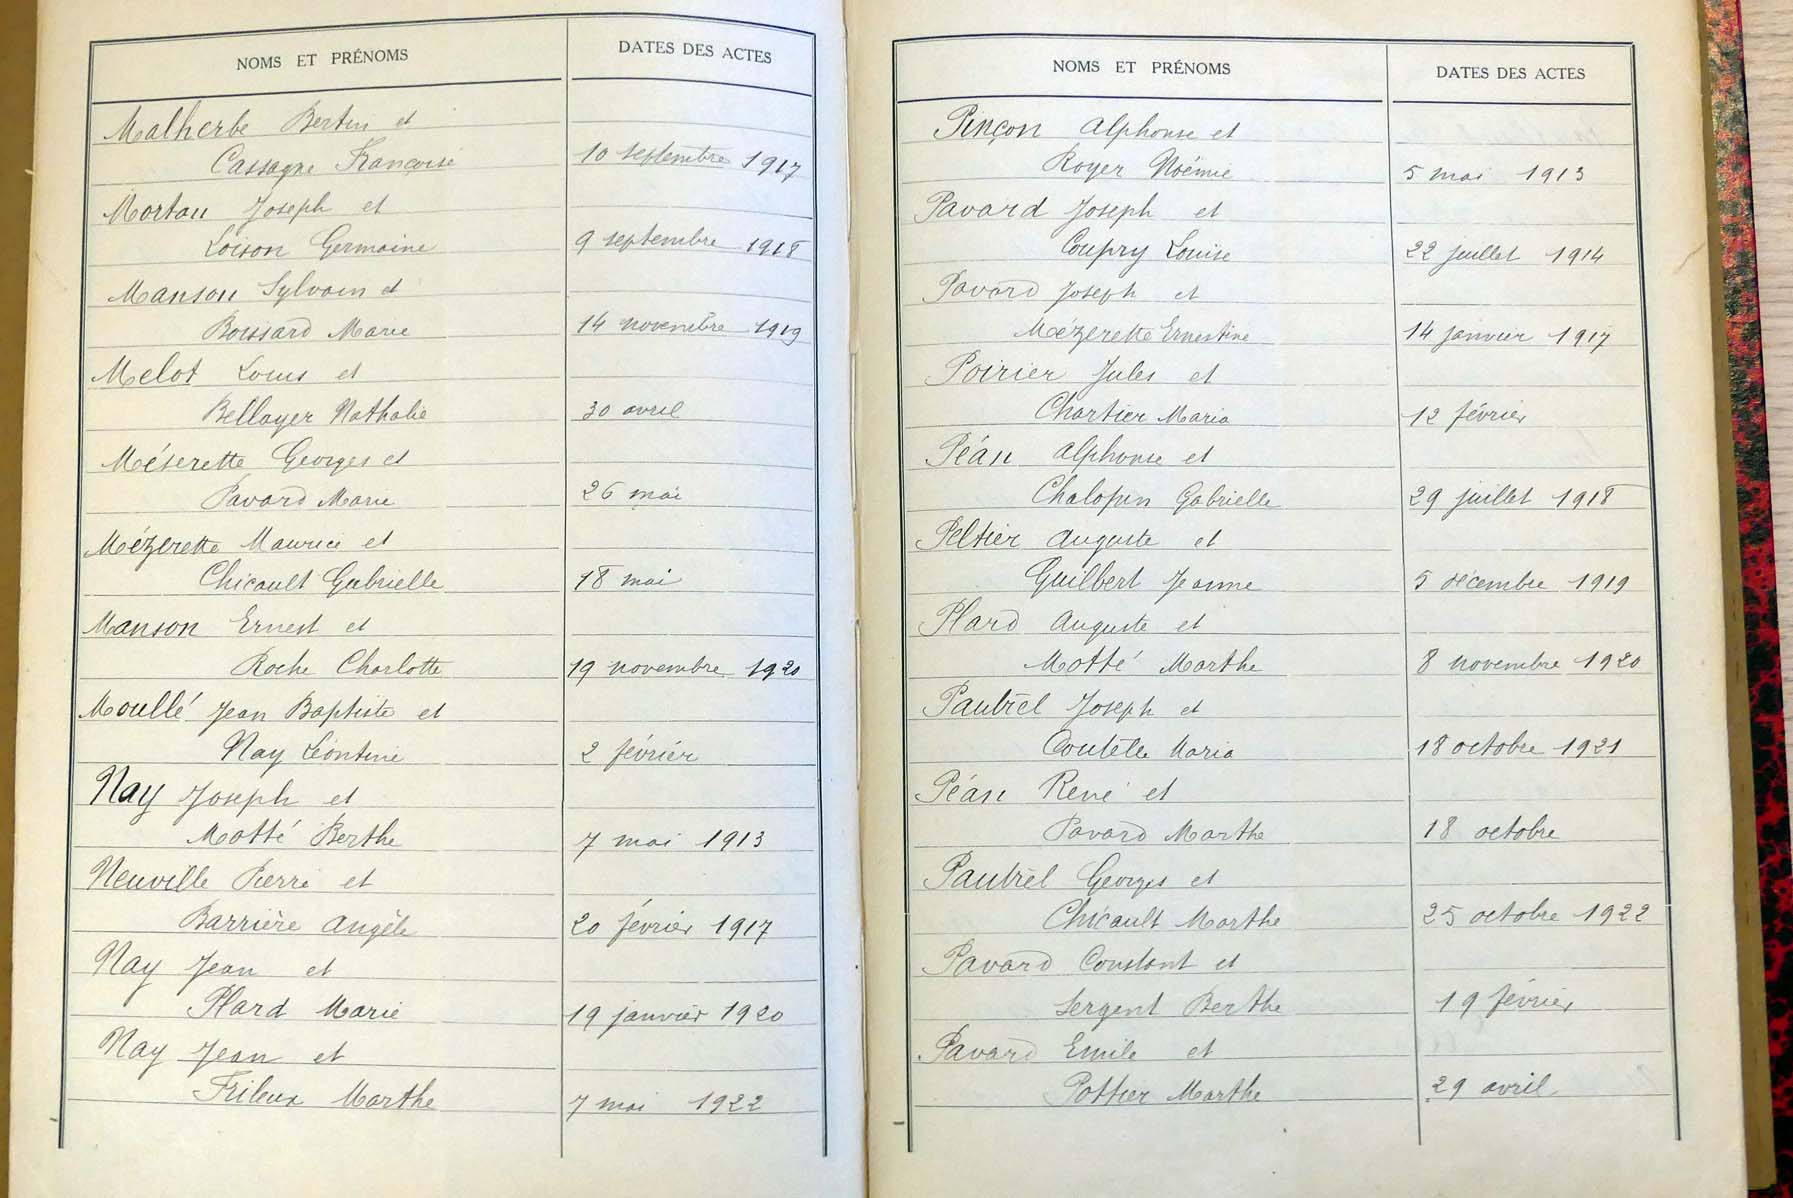 NOMS ET PRÉNOMS DATES DES ACTES
Malherbe Bertin et
Cassagne Françoise 10 septembre 1917
Mortau Joseph et
Loison Germaine 9 septembre 1918
Manson Sylvain et
Boissard Marie 14 novembre 1919
Melot Louis et
Bellayer Nathalie 30 avril
Méserette Georges et
Pavard Marie 26 mai
Mézerette Maurice et
Chicault Gabrielle 18 mai
Manson Ernest et
Roche Charlotte 19 novembre 1920
Moullé Jean Baptiste et
Nay Léontine 2 février
Nay Joseph et
Motté Berthe 7 mai 1913
Neuville Pierre et
Barrière Angèle 20 février 1917
Nay Jean et
Plard Marie 19 janvier 1920
Nay Jean et
Frileux Marthe 7 mai 1922
NOMS ET PRÉNOMS DATES DES ACTES
Pinçon Alphonse et
Royer Noémie 5 mai 1913
Pavard Joseph et
Coupry Louise 22 juillet 1914
Pavard Joseph et
Mézerette Ernestine 14 janvier 1917
Poirier Jules et
Chartier Maria 12 février
Péan Alphonse et
Chalopin Gabrielle 29 juillet 1918
Peltier Auguste et
Guilbert Jeanne 5 décembre 1919
Plard Auguste et
Motté Marthe 8 novembre 1920
Pautrel Joseph et
Coutelle Maria 18 octobre 1921
Péan René et
Pavard Marthe 18 octobre
Pautrel Georges et
Chicault Marthe 25 octobre 1922
Pavard Constant et
Sergent Berthe 19 février
Pavard Emile et
Pottier Marthe 29 avril